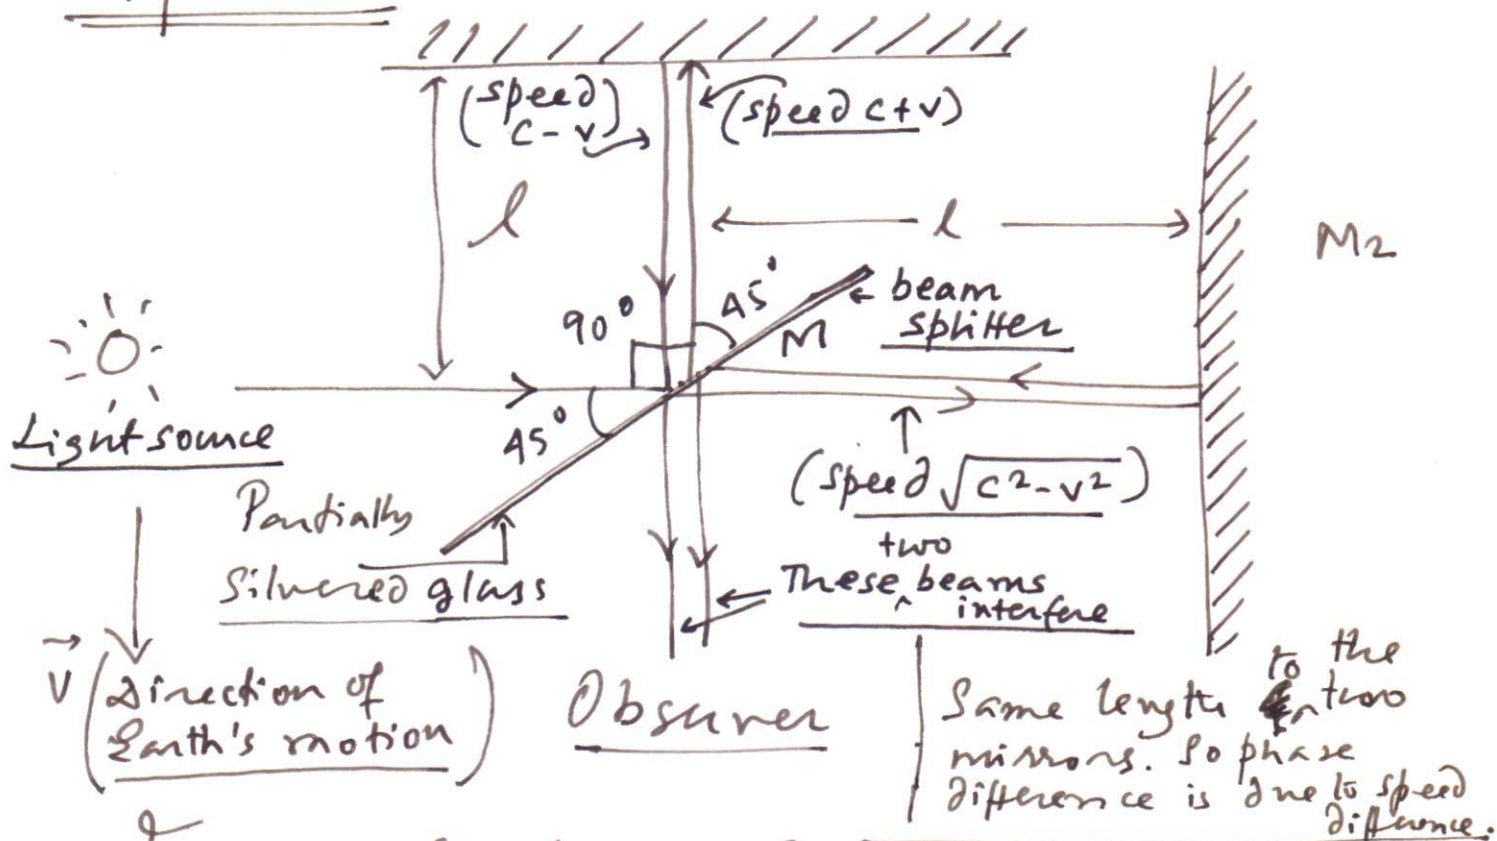 (speed
c - v)
(speed c + v)
l
l
M2
90°
45°
beam
splitter
M
45°
Light source
(speed √c² - v²)
Partially
Silvered glass
two
These ^ beams
interfere
v⃗ (Direction of
Earth's motion)
Observer
Same length to the
two
mirrors. So phase
difference is due to speed
difference.